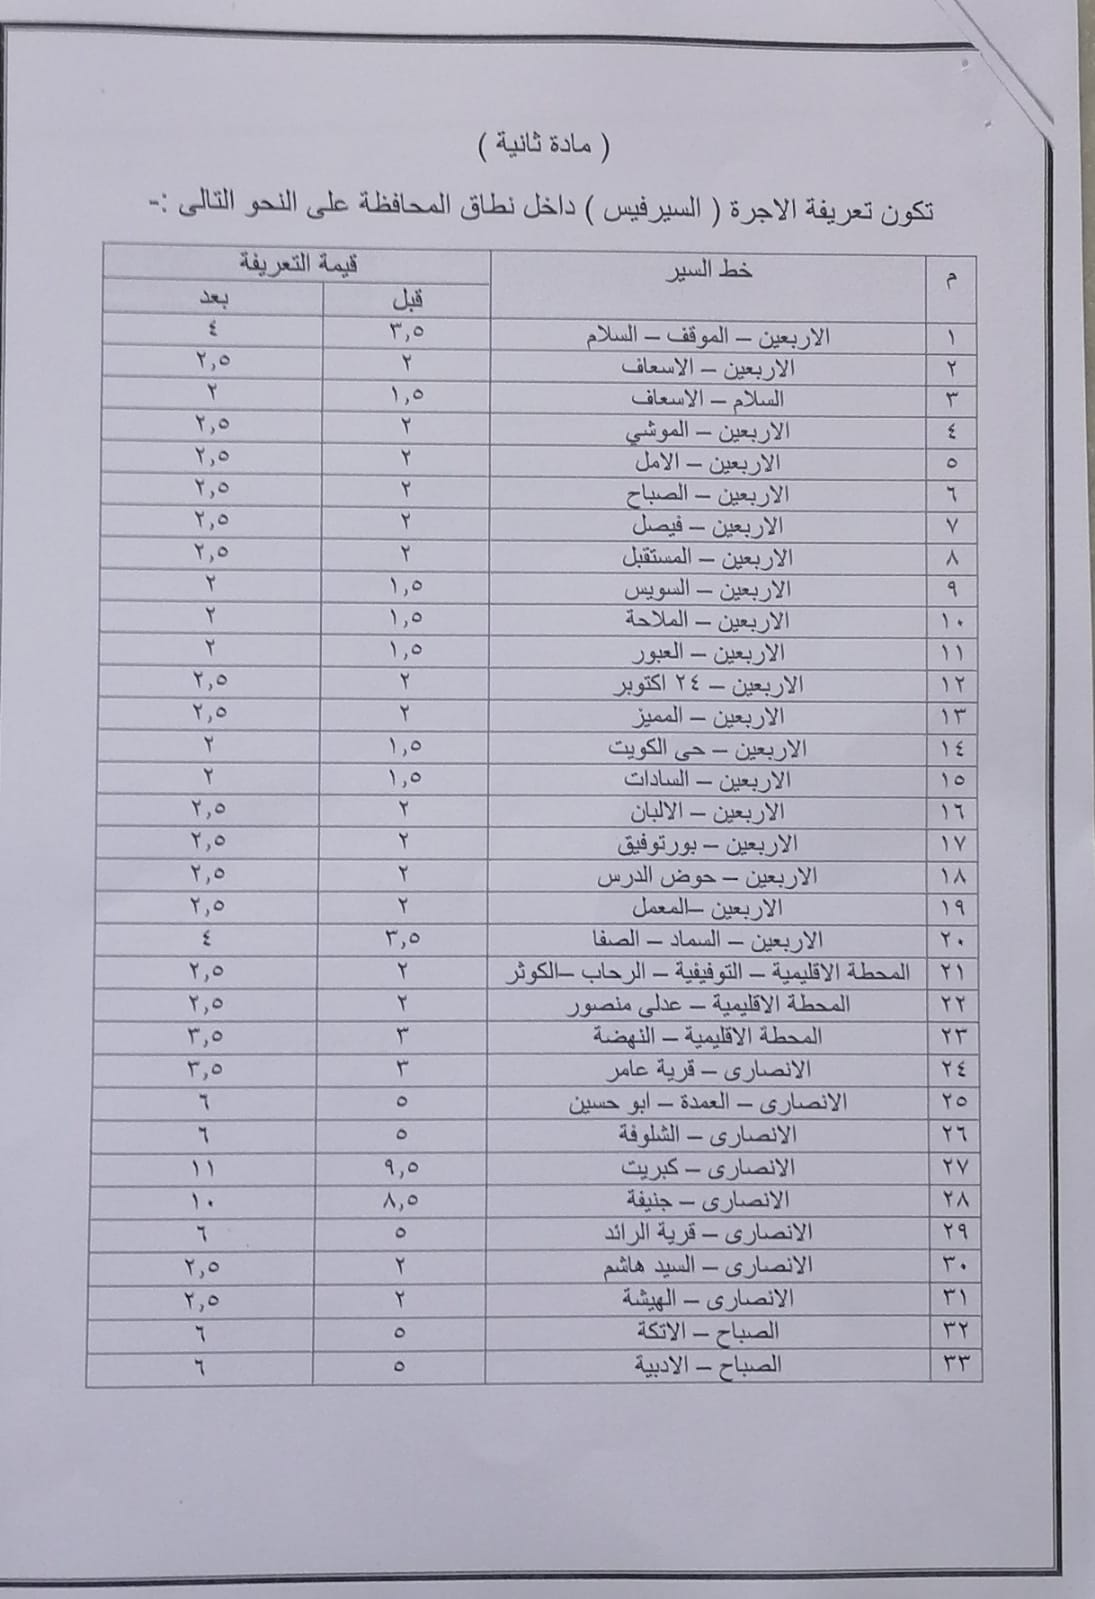 ( مادة ثانية )
تكون تعريفة الاجرة ( السيرفيس ) داخل نطاق المحافظة على النحو التالى :-
م خط السير قيمة التعريفة
قبل بعد
١ الاربعين – الموقف – السلام ٣,٥ ٤
٢ الاربعين – الاسعاف ٢ ٢,٥
٣ السلام – الاسعاف ١,٥ ٢
٤ الاربعين – الموشي ٢ ٢,٥
٥ الاربعين – الامل ٢ ٢,٥
٦ الاربعين – الصباح ٢ ٢,٥
٧ الاربعين – فيصل ٢ ٢,٥
٨ الاربعين – المستقبل ٢ ٢,٥
٩ الاربعين – السويس ١,٥ ٢
١٠ الاربعين – الملاحة ١,٥ ٢
١١ الاربعين – العبور ١,٥ ٢
١٢ الاربعين – ٢٤ اكتوبر ٢ ٢,٥
١٣ الاربعين – المميز ٢ ٢,٥
١٤ الاربعين – حى الكويت ١,٥ ٢
١٥ الاربعين – السادات ١,٥ ٢
١٦ الاربعين – الالبان ٢ ٢,٥
١٧ الاربعين – بورتوفيق ٢ ٢,٥
١٨ الاربعين – حوض الدرس ٢ ٢,٥
١٩ الاربعين –المعمل ٢ ٢,٥
٢٠ الاربعين – السماد – الصفا ٣,٥ ٤
٢١ المحطة الاقليمية – التوفيقية – الرحاب –الكوثر ٢ ٢,٥
٢٢ المحطة الاقليمية – عدلى منصور ٢ ٢,٥
٢٣ المحطة الاقليمية – النهضة ٣ ٣,٥
٢٤ الانصارى – قرية عامر ٣ ٣,٥
٢٥ الانصارى – العمدة – ابو حسين ٥ ٦
٢٦ الانصارى – الشلوفة ٥ ٦
٢٧ الانصارى – كبريت ٩,٥ ١١
٢٨ الانصارى – جنيفة ٨,٥ ١٠
٢٩ الانصارى – قرية الرائد ٥ ٦
٣٠ الانصارى – السيد هاشم ٢ ٢,٥
٣١ الانصارى – الهيشة ٢ ٢,٥
٣٢ الصباح – الاتكة ٥ ٦
٣٣ الصباح – الادبية ٥ ٦